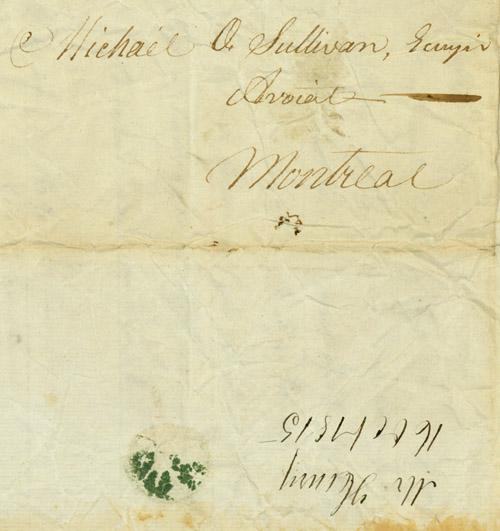 Michael O. Sullivan, Ecuyir
Avocat
Montreal
Mr Henry
16 Oct 1815